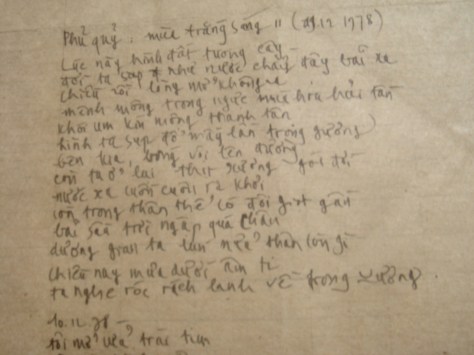 Phủ quỷ. mùa trăng sáng 11 (09.12 1978)
Lúc này hình đất tượng cây
đời ta sụp như nước chảy đầy bãi xa
chiều rồi lòng mở không
mênh mông trong ngực mùa hoa hửu tàn
khói um kín miệng thành tan
hình ta sụp đổ mấy lần trong gương
bên kia, vời tên đường
còn ta ở lại thịt xương gọi đời
nước xa cuồn cuộn ra khơi
còn trong thân thể có đôi giọt gần
bãi sâu trời ngập quá chân
dương gian ta lún nửa thân còn gì
chiều nay mưa dưới âm ti
ta nghe róc rách lạnh về trong xương.
10.12.78 -
tôi mổ trái tim